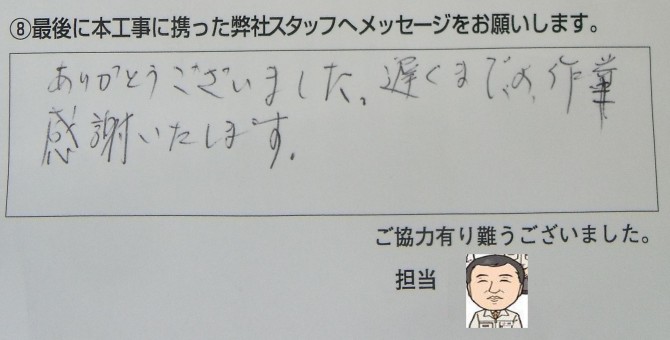 ⑧最後に本工事に携った弊社スタッフへメッセージをお願いします。
ありがとうございました。遅くまでの作業
感謝いたします。
ご協力有り難うございました。
担当